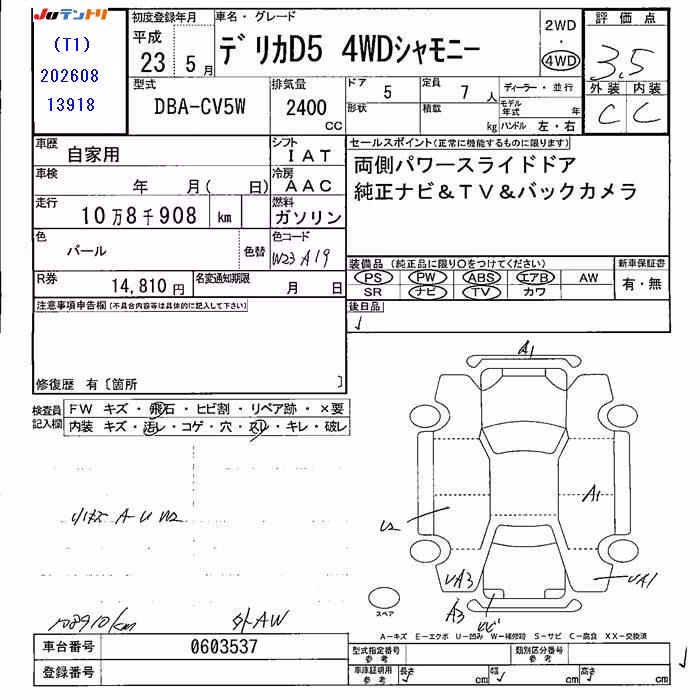 JUテントリ
(T1)
202608
13918
初度登録年月
平成
23 5 月
車名・グレード
デリカD5 4WDシャモニー
2WD
・
4WD
評価点
3.5
外装 内装
C C
型式
DBA-CV5W
排気量
2400
CC
ドア
5
形状
定員
7 人
積載
kg
ディーラー・並行
モデル年式 年
ハンドル 左・右
車歴
自家用
シフト
IAT
車検
年 月( 日)
冷房
AAC
走行
10万8千908 km
燃料
ガソリン
色
パール
色替
色コード
W23 A19
R券
14,810 円
名変通知期限
月 日
セールスポイント(正常に機能するものに限ります)
両側パワースライドドア
純正ナビ&TV&バックカメラ
装備品(純正品に限り○をつけてください)
PS PW ABS エアB AW
SR ナビ TV カワ
新車保証書
有・無
後日品
注意事項申告欄(不具合内容等は具体的に記入して下さい)
修復歴 有〔箇所 〕
検査員記入欄
FW キズ・飛石・ヒビ割・リペア跡・×要
内装 キズ・汚レ・コゲ・穴・スレ・キレ・破レ
小キズ A U W2
108910km
外AW
A1
A1
U2
UA3
UA1
A3
スペア
A-キズ E-エクボ U-凹み W-補修跡 S-サビ C-腐食 XX-交換済
車台番号
0603537
登録番号
型式指定番号
参考
類別区分番号
参考
車庫証明用
参考
長さ cm
幅 cm
高さ cm